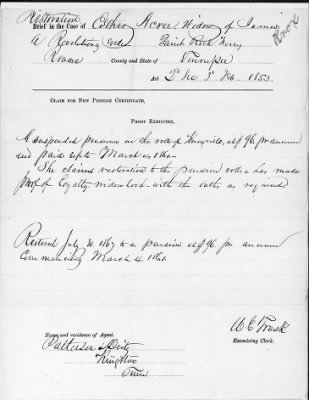 Restoration
Brief in the Case of Esther Acree Widow of James
Knox
A Revolutionary Paint Rock Ferry
Roane County and State of Tennessee
Act 2^d Sec 3^d Feb. 1853.
CLAIM FOR NEW PENSION CERTIFICATE.
PROOF EXHIBITED.
A suspended pension on the roll of Knoxville, at $96 per annum
and paid up to March 4, 186
She claims restoration to the pension roll & has made
proof of loyalty widowhood with the oath as required
Restored July 1867 to a pension of $96 per annum
Commencing March 4. 186
W E Trask
Examining Clerk.
Name and residence of Agent.
Patterson &
Kingston
Tenn